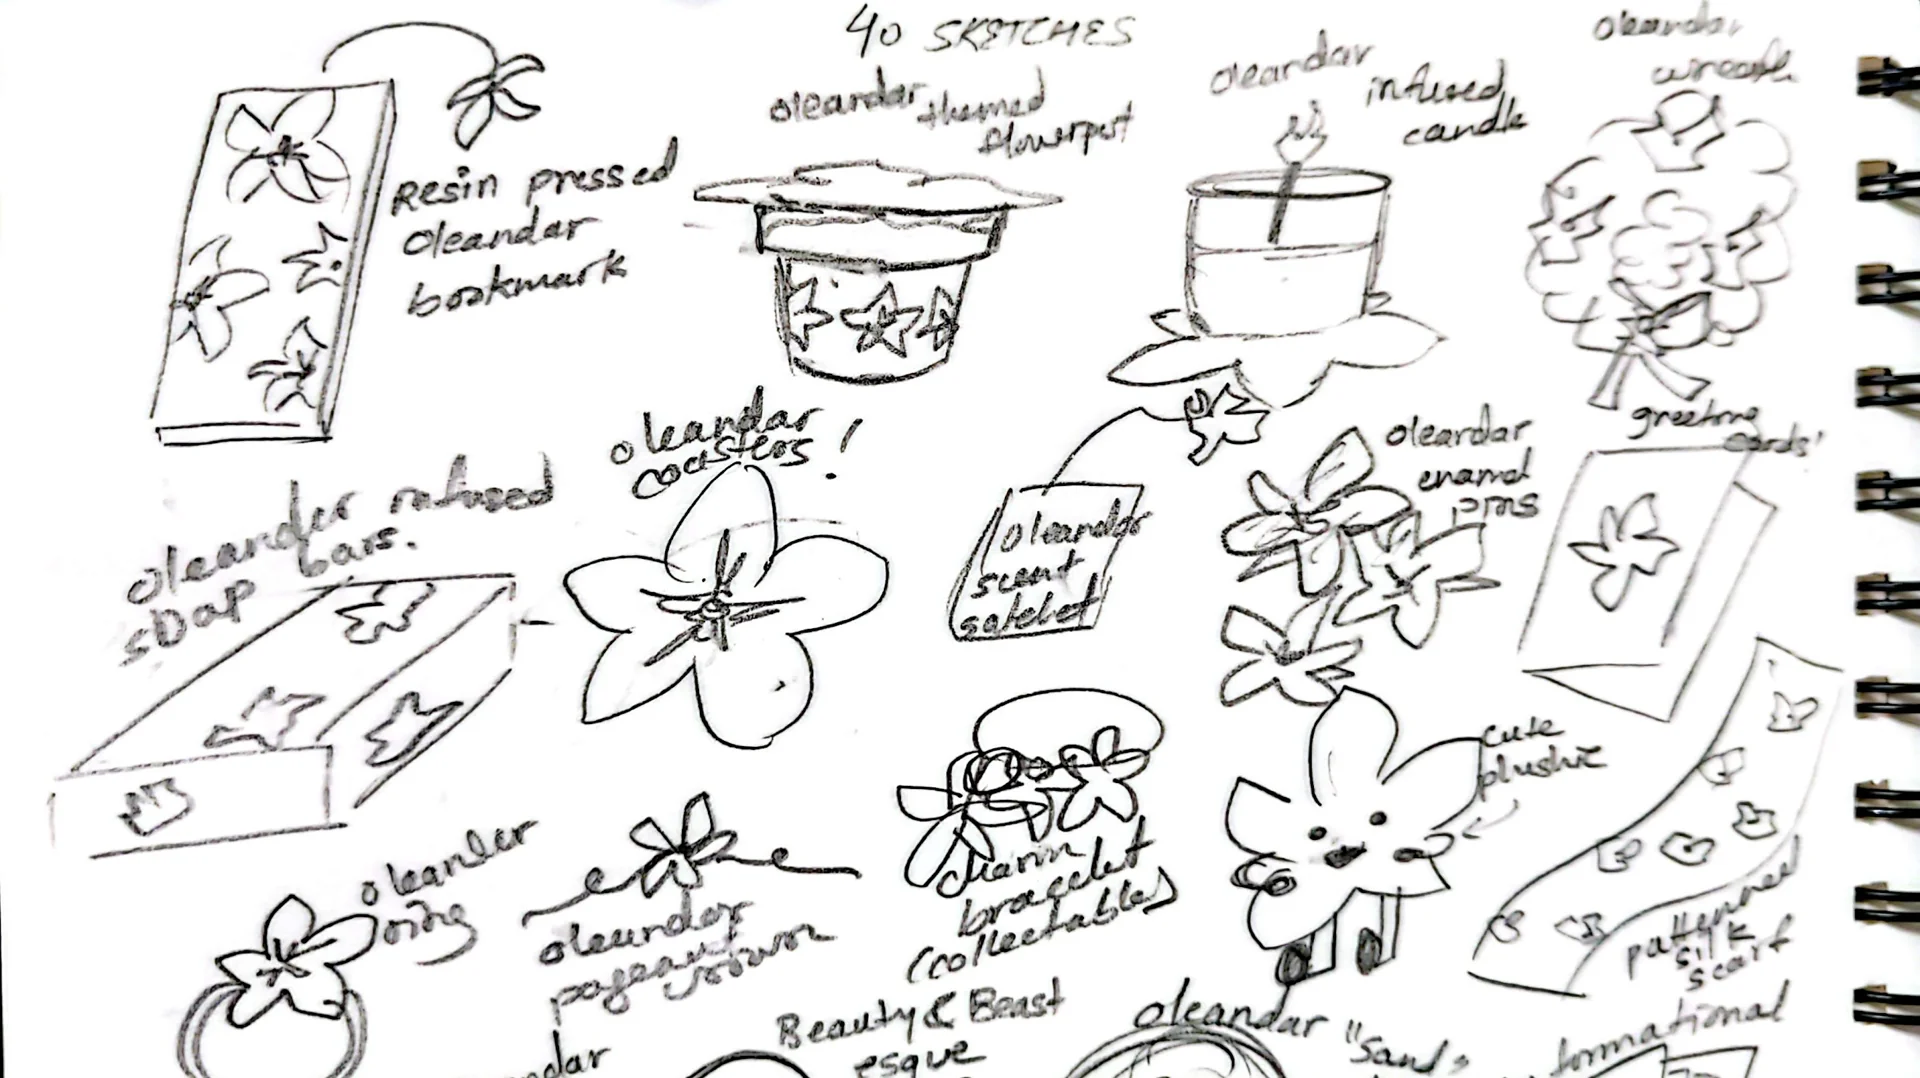 40 SKETCHES
Resin pressed
oleandar
bookmark
oleandar themed
flowerpot
oleandar infused
candle
oleandar
wreath
oleander infused
soap bars.
oleandar
coasters!
oleandar
scent
satchet
oleardar
enamel
pins
greeting
cards!
oleander
ring
oleandar
pageant
crown
charm
bracelet
(collectables)
cute
plushie
patterned
silk
scarf
Beauty & Beast
esque
oleandar "Sand
formational